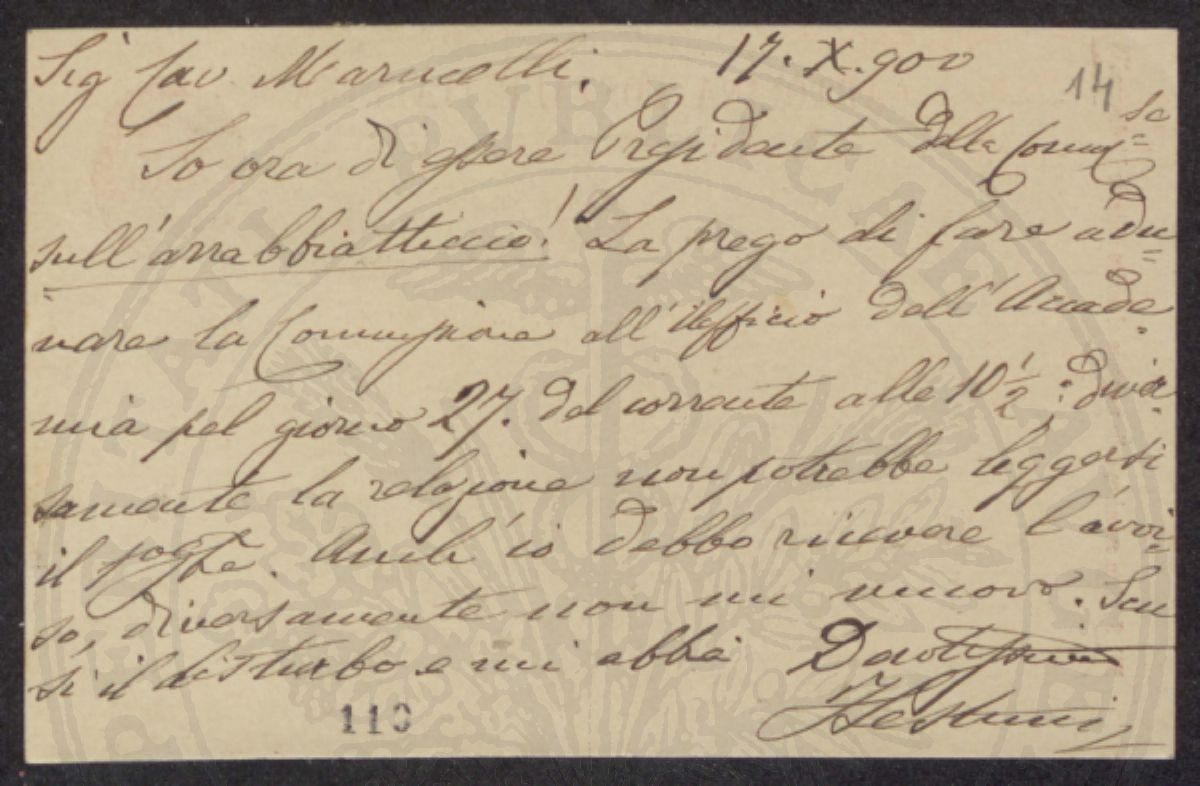 Sig Cav Marucelli. 17. X. 900
14
So ora di essere Presidente della Comm=se
sull'arrabbiatticcio! La prego di fare adu=
nare la Commissione all'Ufficio dell'Accade=
mia pel giorno 27. del corrente alle 10 ½; diver=
samente la relazione non potrebbe leggersi
il 9bre. Anch'io debbo ricevere l'avvi=
so, diversamente non mi muovo. Scu
si il disturbo e mi abbia Devotissimo
110